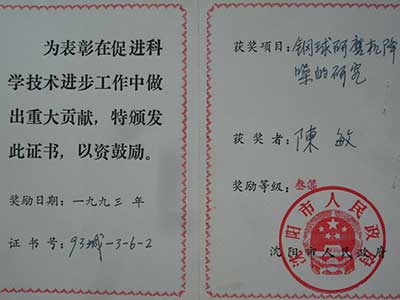 为表彰在促进科
学技术进步工作中做
出重大贡献，特颁发
此证书，以资鼓励。
奖励日期：一九九三 年
证 书 号：93城-3-6-2
获奖项目：钢球研磨机降
噪的研究
获 奖 者：陳 敏
奖励等级：叁等
沈阳市人民政府
沈阳市人民政府